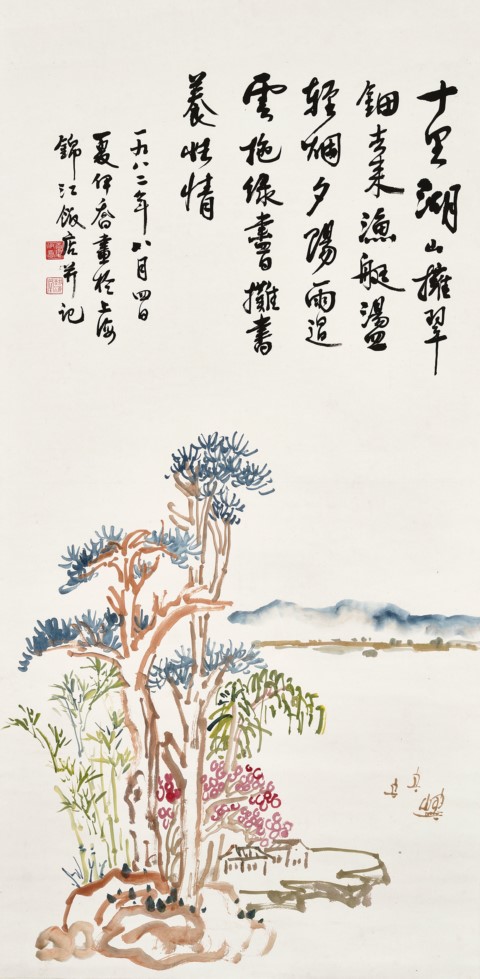 十里湖山擁翠
鈿去來漁艇盪
輕烟夕陽雨過
雲拖綠盡日攤書
養性情
一九八二年八月四日
夏伊喬畫於上海
錦江飯店并記